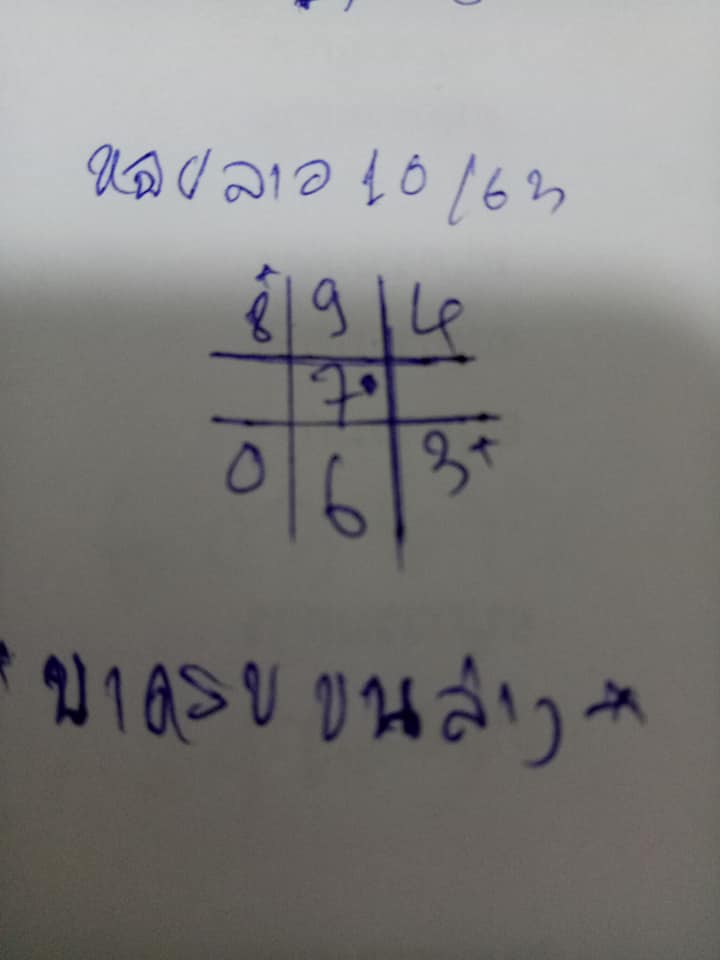 หวยลาว 10/63
8+ 9 4
7•
0 6 3+
มาครบ บนล่าง *